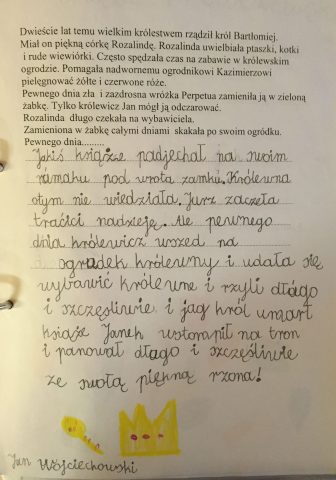 Dwieście lat temu wielkim królestwem rządził król Bartłomiej.
Miał on piękną córkę Rozalindę. Rozalinda uwielbiała ptaszki, kotki
i rude wiewiórki. Często spędzała czas na zabawie w królewskim
ogrodzie. Pomagała nadwornemu ogrodnikowi Kazimierzowi
pielęgnować żółte i czerwone róże.
Pewnego dnia zła i zazdrosna wróżka Perpetua zamieniła ją w zieloną
żabkę. Tylko królewicz Jan mógł ją odczarować.
Rozalinda długo czekała na wybawiciela.
Zamieniona w żabkę całymi dniami skakała po swoim ogródku.
Pewnego dnia.........
Jakiś książe padjechał na swoim
rumaku pod wrota zamku. Królewna
otym nie wiedziała. Jurz zaczeła
traćici nadzieję. Ale pewnego
dnia królewicz wszed na
ogradek królewny i udała się
wybawić królewne i rzyli dłago
i szczęśliwie i jag król umart
książe Janek wstompił na tron
i panował dłago i szczęśliwie
ze swołą piękną rzona!
Jan Wojciechowski